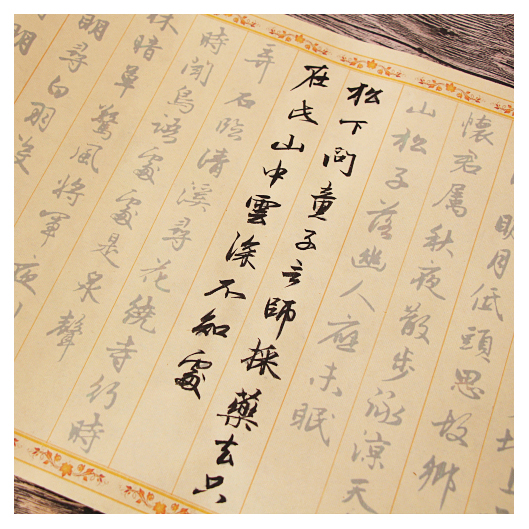 明月低頭思故鄉
懷君屬秋夜散步詠涼天
山松子落幽人應未眠
松下問童子言師採藥去只
在此山中雲深不知處
弄石臨清溪尋花繞寺行時
時聞鳥語處處是泉聲
林暗草驚風將軍夜引
明尋白羽沒